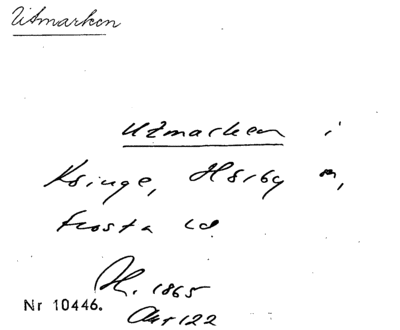 Utmarken
Utmarken i
Ksinge, Hörby sn,
Frosta hd
H. 1865
Nr 10446.
Akt 122